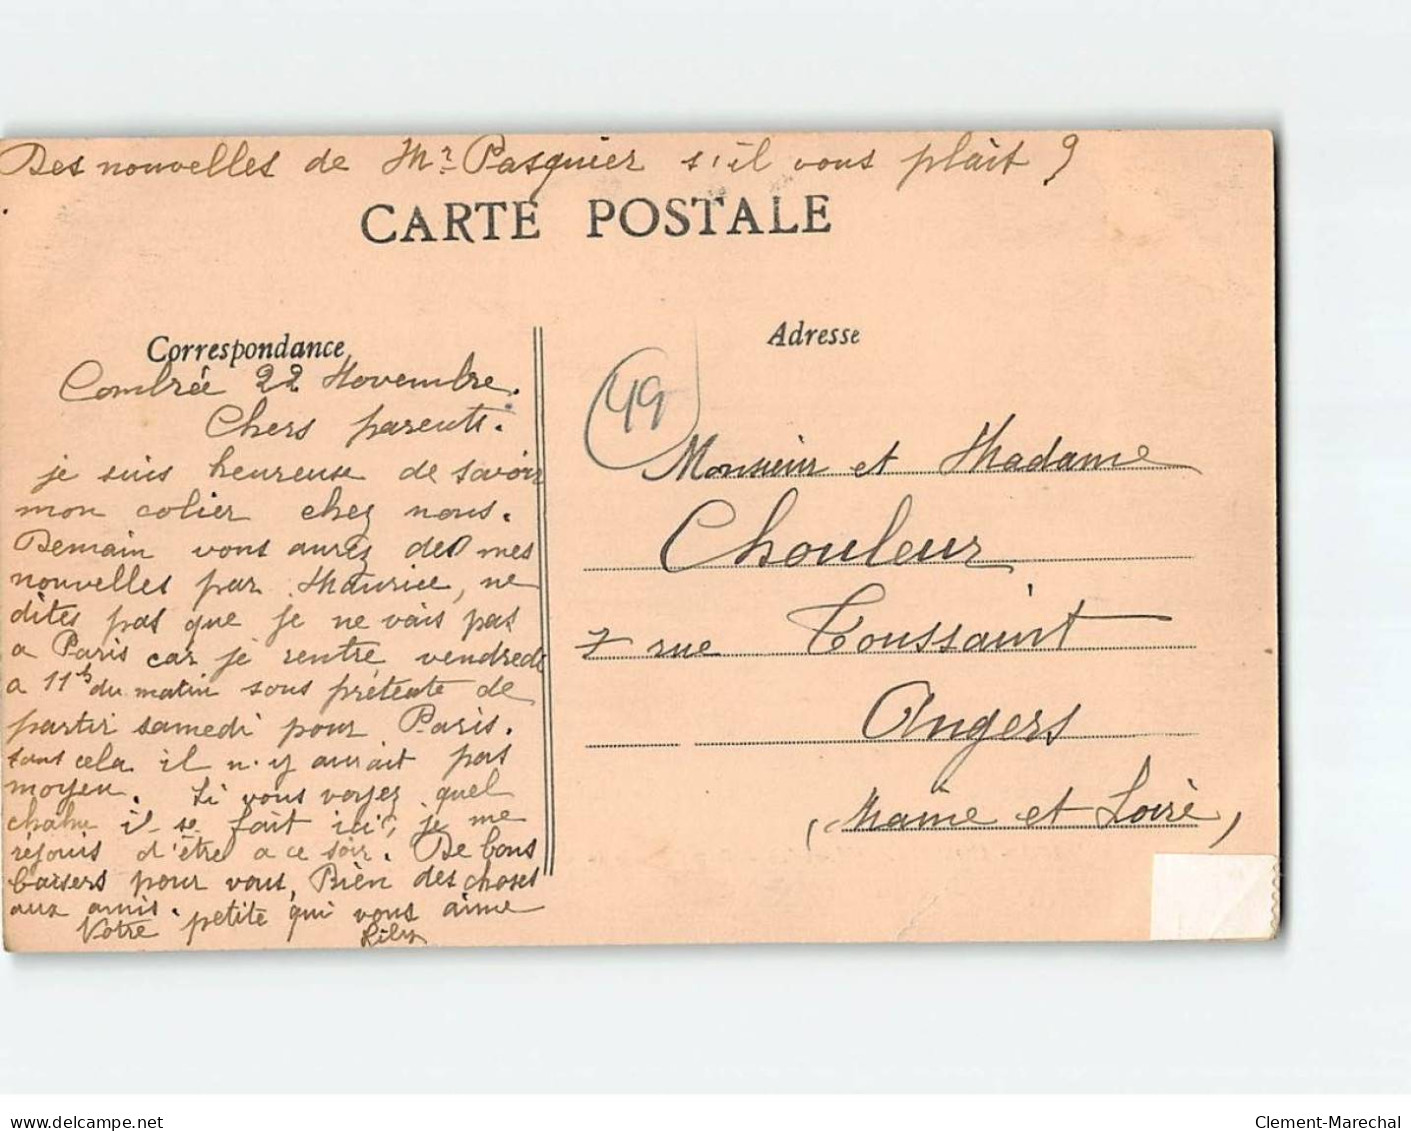 Des nouvelles de Mr Pasquier s'il vous plait ?
CARTE POSTALE
Correspondance
Combrée 22 Novembre.
Chers parents.
je suis heureuse de savoir
mon colier chez nous.
Demain vous aurez de mes
nouvelles par Maurice, ne
dites pas que je ne vais pas
a Paris car je rentre vendredi
a 11h du matin sous prétexte de
partir samedi pour Paris.
sans cela il n'y aurait pas
moyen. Si vous voyez quel
chahu il se fait ici, je me
rejouis d'être a ce soir. De bons
baisers pour vous, Bien des choses
aux amis.
Votre petite qui vous aime
Lily
Adresse
49
Monsieur et Madame
Chouleur
7 rue Toussaint
Angers
(Maine et Loire)
delcampe.net
Clement-Marechal